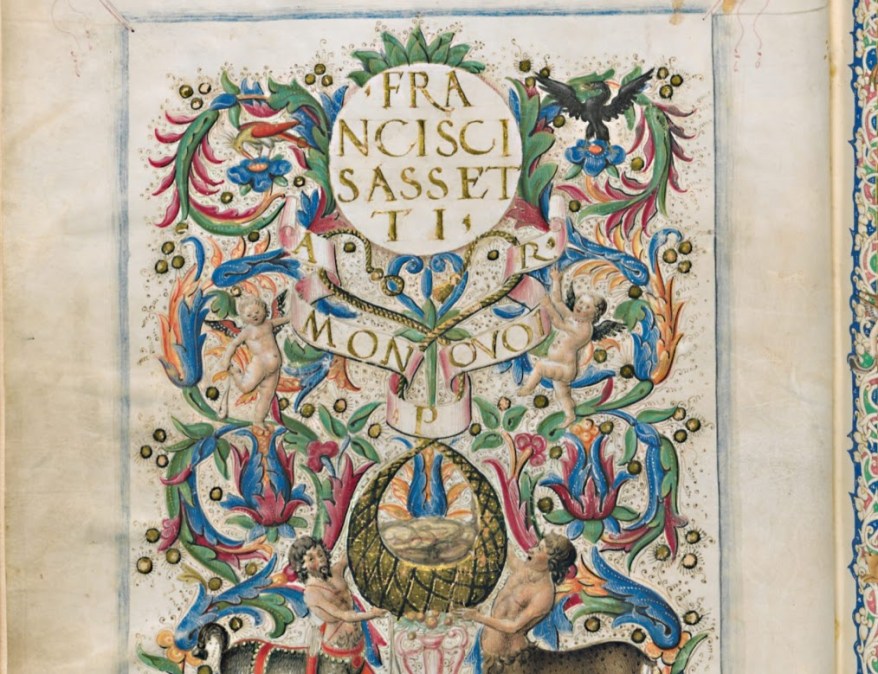 ·FRA
NCISCI
SASSET
TI·
A MON POVOIR·